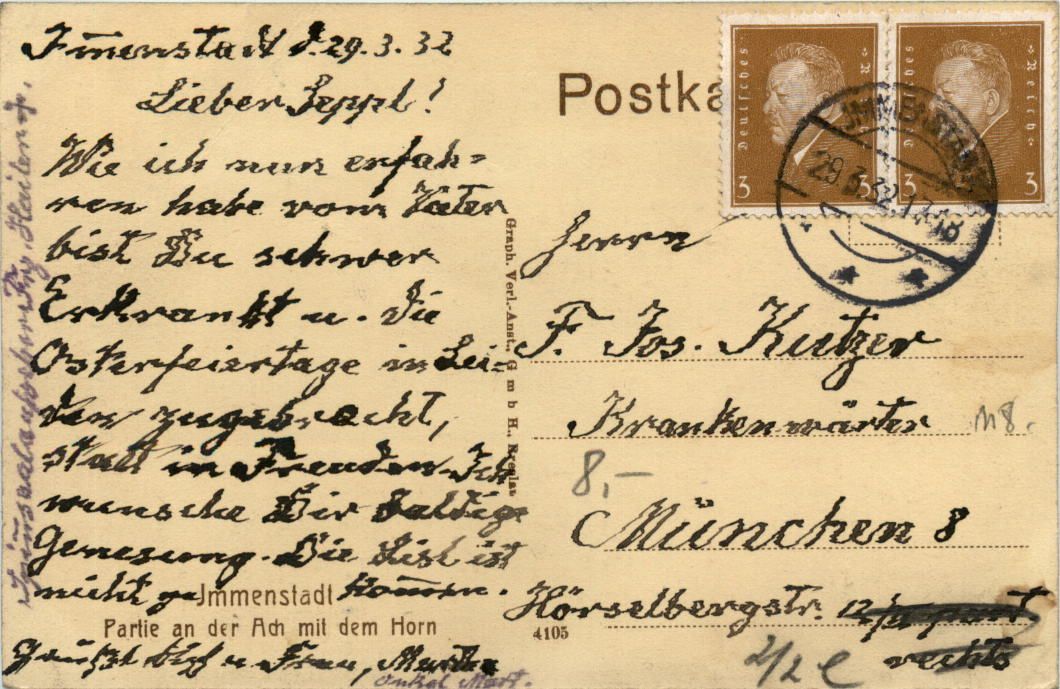 Immenstadt d. 29.3.32
Lieber Seppl!
Wie ich nun erfah=
ren habe vom Vater
bist Du schwer
Erkrankt u. die
Osterfeiertage in Lei=
den zugebracht,
statt in Freuden. Ich
wünsche Dir baldige
Genesung. Die List ist
nicht ge kommen.
Immenstadt
Partie an der Ach mit dem Horn
Frau, Martha
Onkel Mart.
Graph. Verl.-Anst., G m b H., Breslau
4105
Postka
Deutsches Reich
3 3
Deutsches Reich
3 3
IMMENSTADT
29.3.32.17-18
Herrn
F. Jos. Kutzer
Krankenwärter
M8.
8,-
München 8
Hörselbergstr. 12/II part
rechts